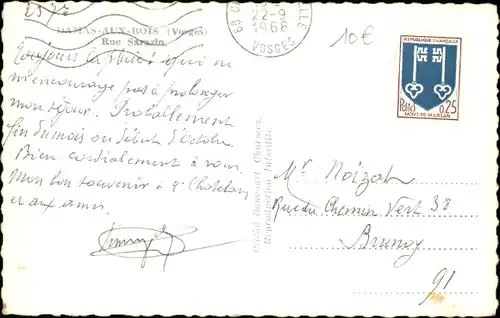 DAMAS-AUX-BOIS (Vosges)
Rue Sarazin
22-9
1968
VOSGES
10€
RÉPUBLIQUE FRANÇAISE
Postes 0,25
MONT-DE-MARSAN
Toujours la pluie ! qui ne
m'encourage pas à prolonger
mon séjour. Probablement
fin du mois ou début d'octobre
Bien cordialement à vous
Mon bon souvenir à
et aux amis.
Reproduction interdite
Mr Noizat
Rue du Chemin Vert 38
Brunoy
91